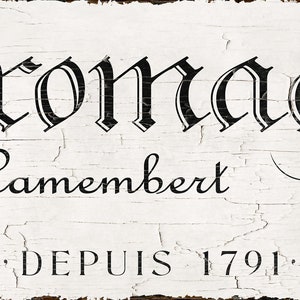 romag
Camembert
· DEPUIS 1791 ·